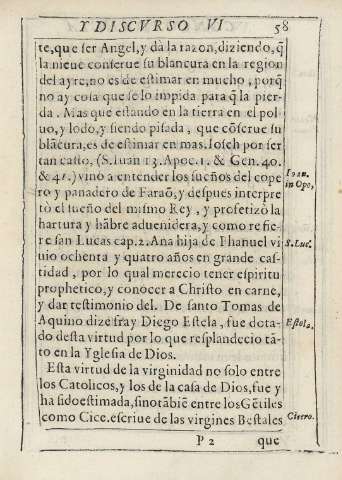 Y DISCVRSO VI 58
te, que ser Angel, y dà la razon, diziendo, q̃
la nieue conserue su blancura en la region
del ayre, no es de estimar en mucho, porq̃
no ay cosa que se lo impida para q̃ la pier-
da. Mas que estando en la tierra en el pol-
uo, y lodo, y siendo pisada, que cõserue su
blãcura, es de estimar en mas. Iosch por ser
tan casto, (S. Iuan 13. Apoc. 1. & Gen. 40.
& 41.) vino a entender los sueños del cope
ro y panadero de Faraõ, y despues interpre
tò el sueño del mismo Rey, y profetizò la
hartura y hãbre aduenidera, y como refie
re san Lucas cap. 2. Ana hija de Phanuel vi
uio ochenta y quatro años en grande cas-
tidad, por lo qual merecio tener espiritu
prophetico, y conocer a Christo en carne,
y dar testimonio del. De santo Tomas de
Aquino dize fray Diego Estela, fue dota-
do desta virtud por lo que resplandecio tã-
to en la Yglesia de Dios.
Esta virtud de la virginidad no solo entre
los Catolicos, y los de la casa de Dios, fue y
ha sido estimada, sino tãbiẽ entre los Gẽtiles
como Cice. escriue de las virgines Bestales
P 2 que
Ioan.
in Opo,
S. Luc.
Estela.
Cicero.